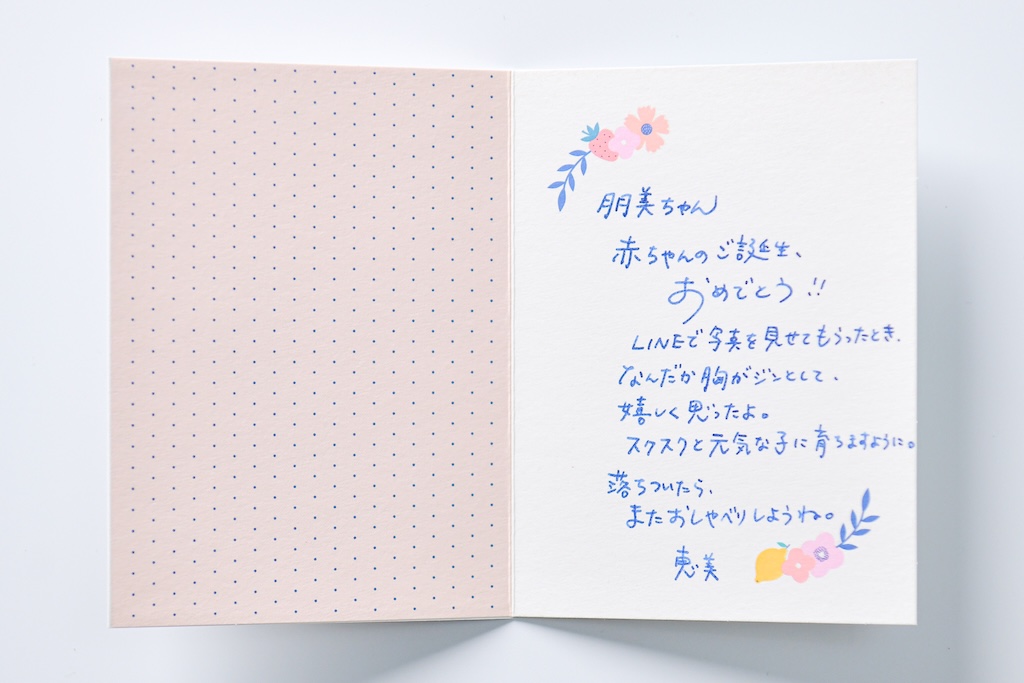 朋美ちゃん
赤ちゃんのご誕生、
おめでとう!!
LINEで写真を見せてもらったとき、
なんだか胸がジンとして、
嬉しく思ったよ。
スクスクと元気な子に育ちますように。
落ちついたら、
またおしゃべりしようね。
恵美